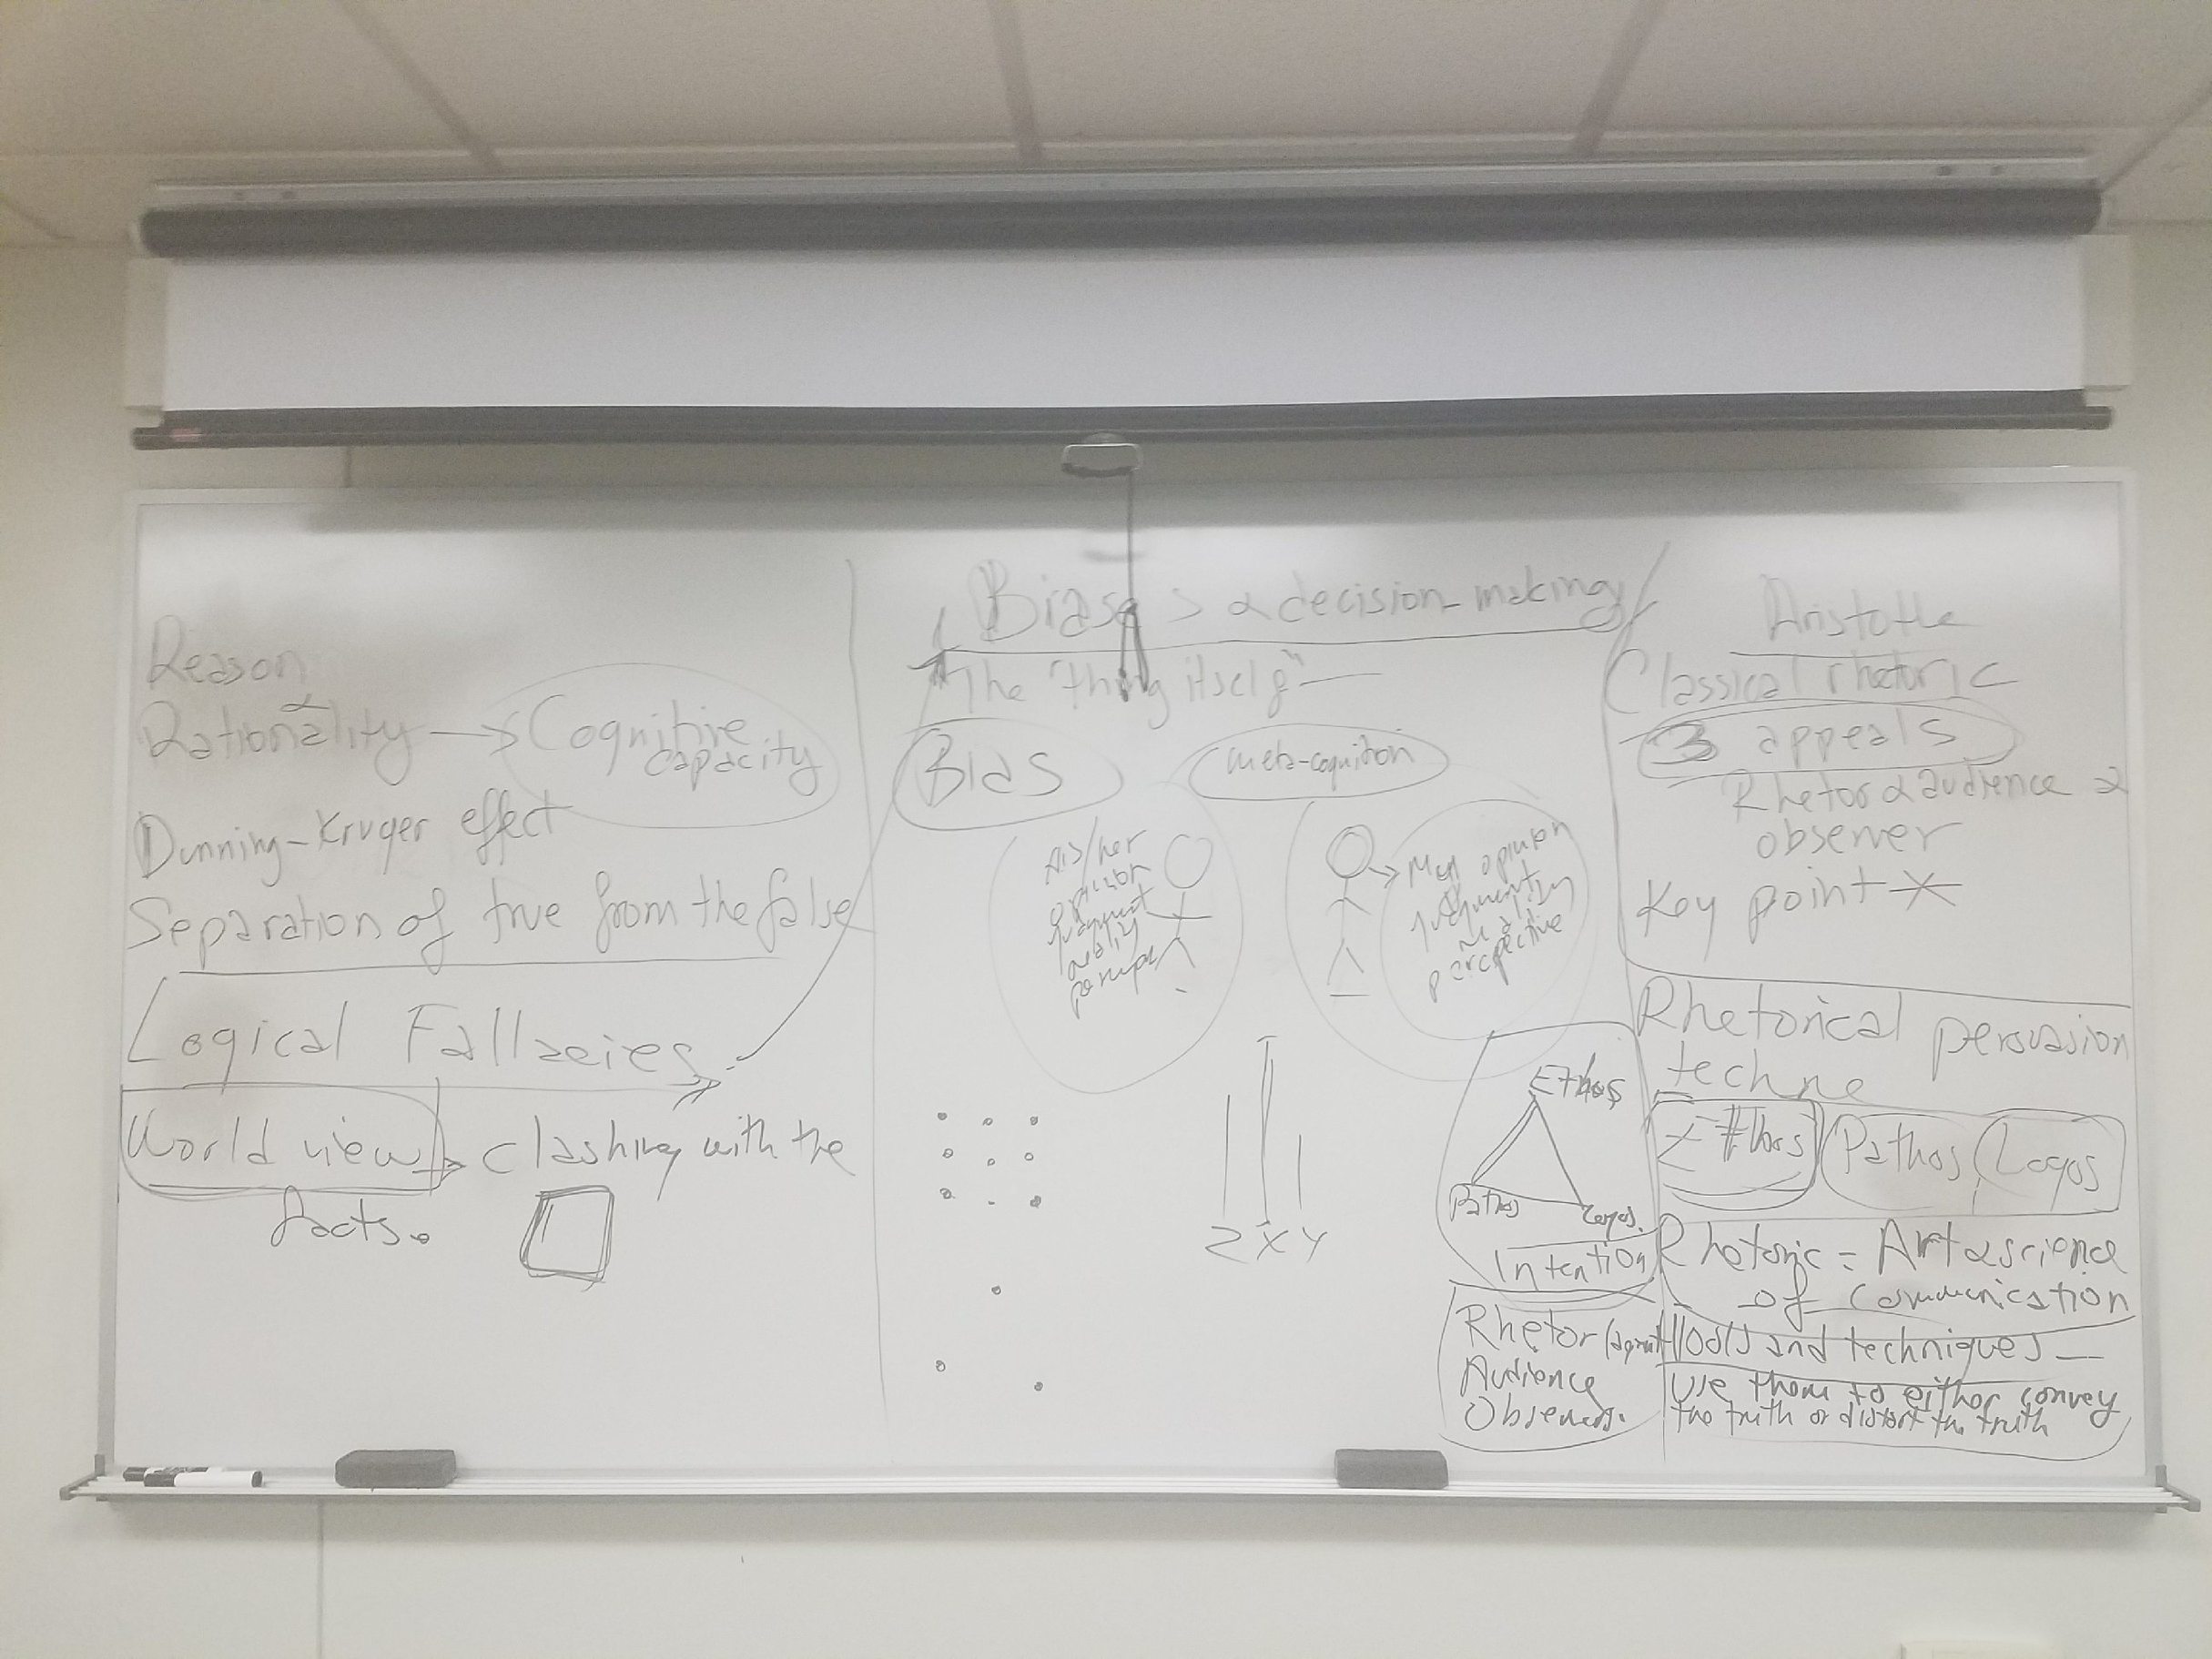 Reason
Rationality → Cognitive
capacity
Dunning-Kruger effect
Separation of true from the false
Logical Fallacies
World view → clashing with the
facts.
Biases & decision-making
The "thing itself" —
Bias
meta-cognition
His/her
opinion
judgment
reality
→ My opinion
judgment
reality
perspective
Z X Y
Aristotle
Classical rhetoric
3 appeals
Rhetor & audience &
observer
Key point
Rhetorical persuasion
techne
Ethos Pathos Logos
Ethos
Pathos Logos.
Intention
Rhetor (agent
Audience
Observers.
Rhetoric = Art & science
of communication
Tools and techniques —
Use them to either convey
the truth or distort the truth